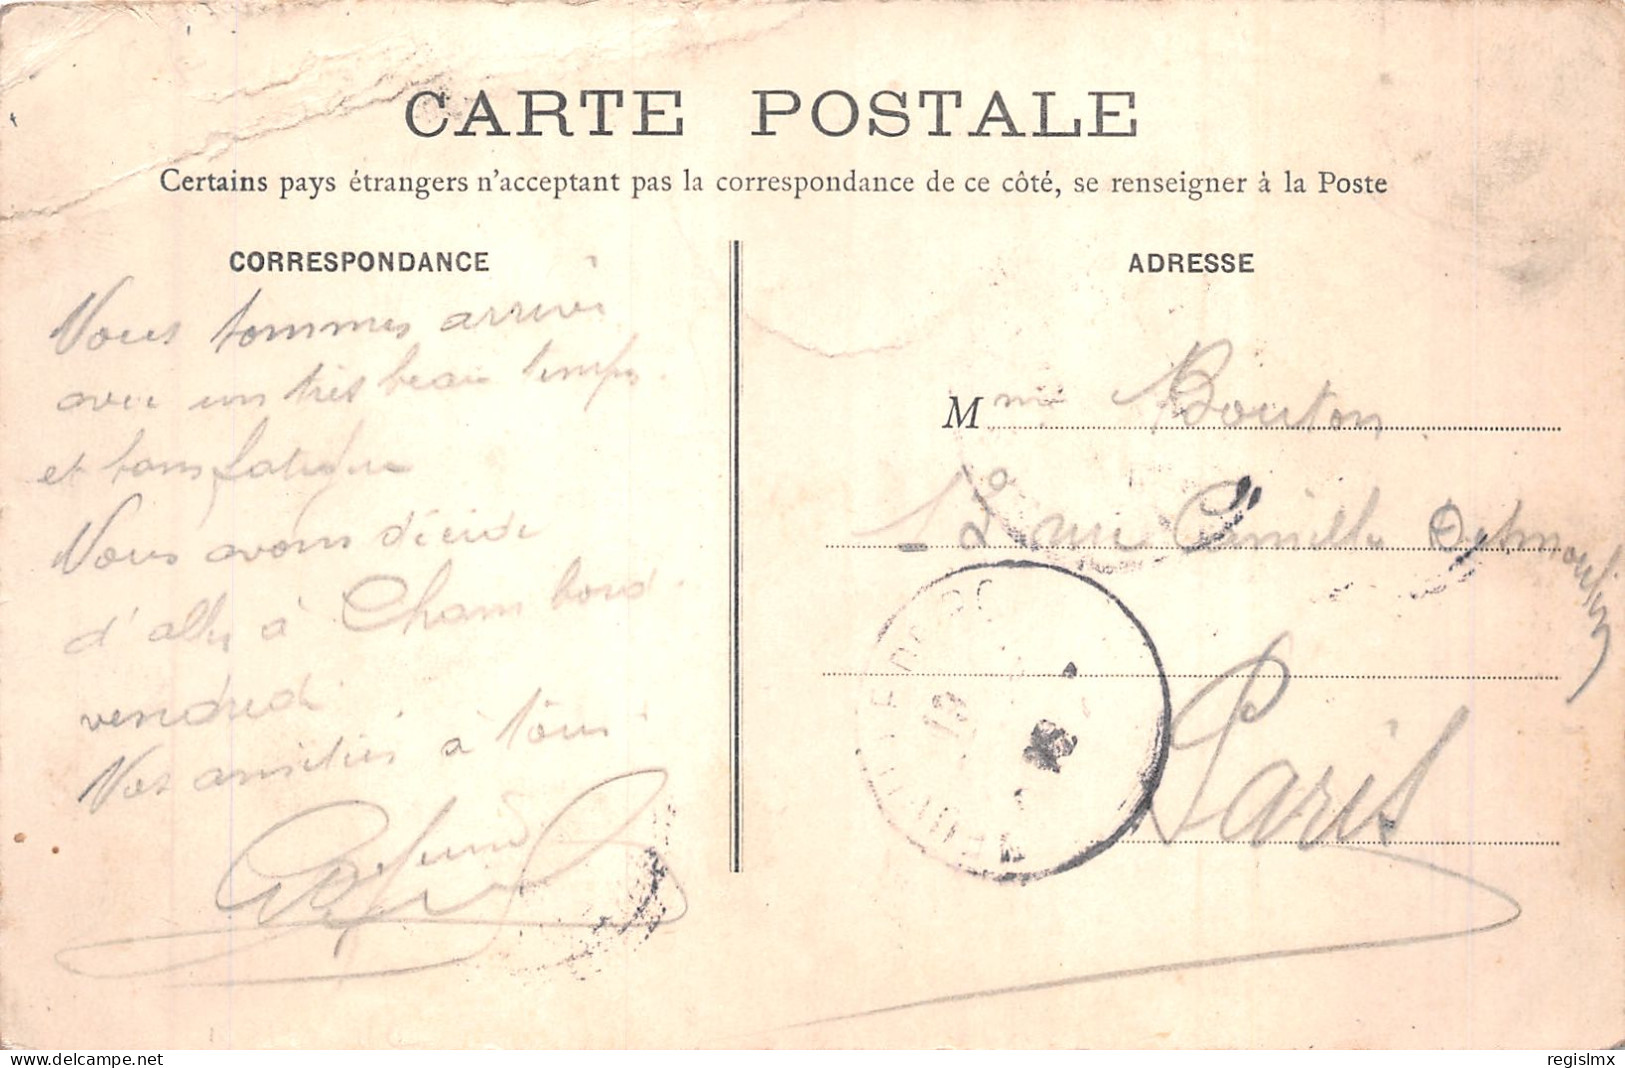 CARTE POSTALE
Certains pays étrangers n'acceptant pas la correspondance de ce côté, se renseigner à la Poste
CORRESPONDANCE
Nous sommes arrivé
avec un très beau temps.
et sans fatigue
Nous avons décidé
d'aller à Chambord.
vendredi
Nos amitiés à tous
ADRESSE
Mme Bouton
12 rue Camille Desmoulins
Paris
delcampe.net
regislmx